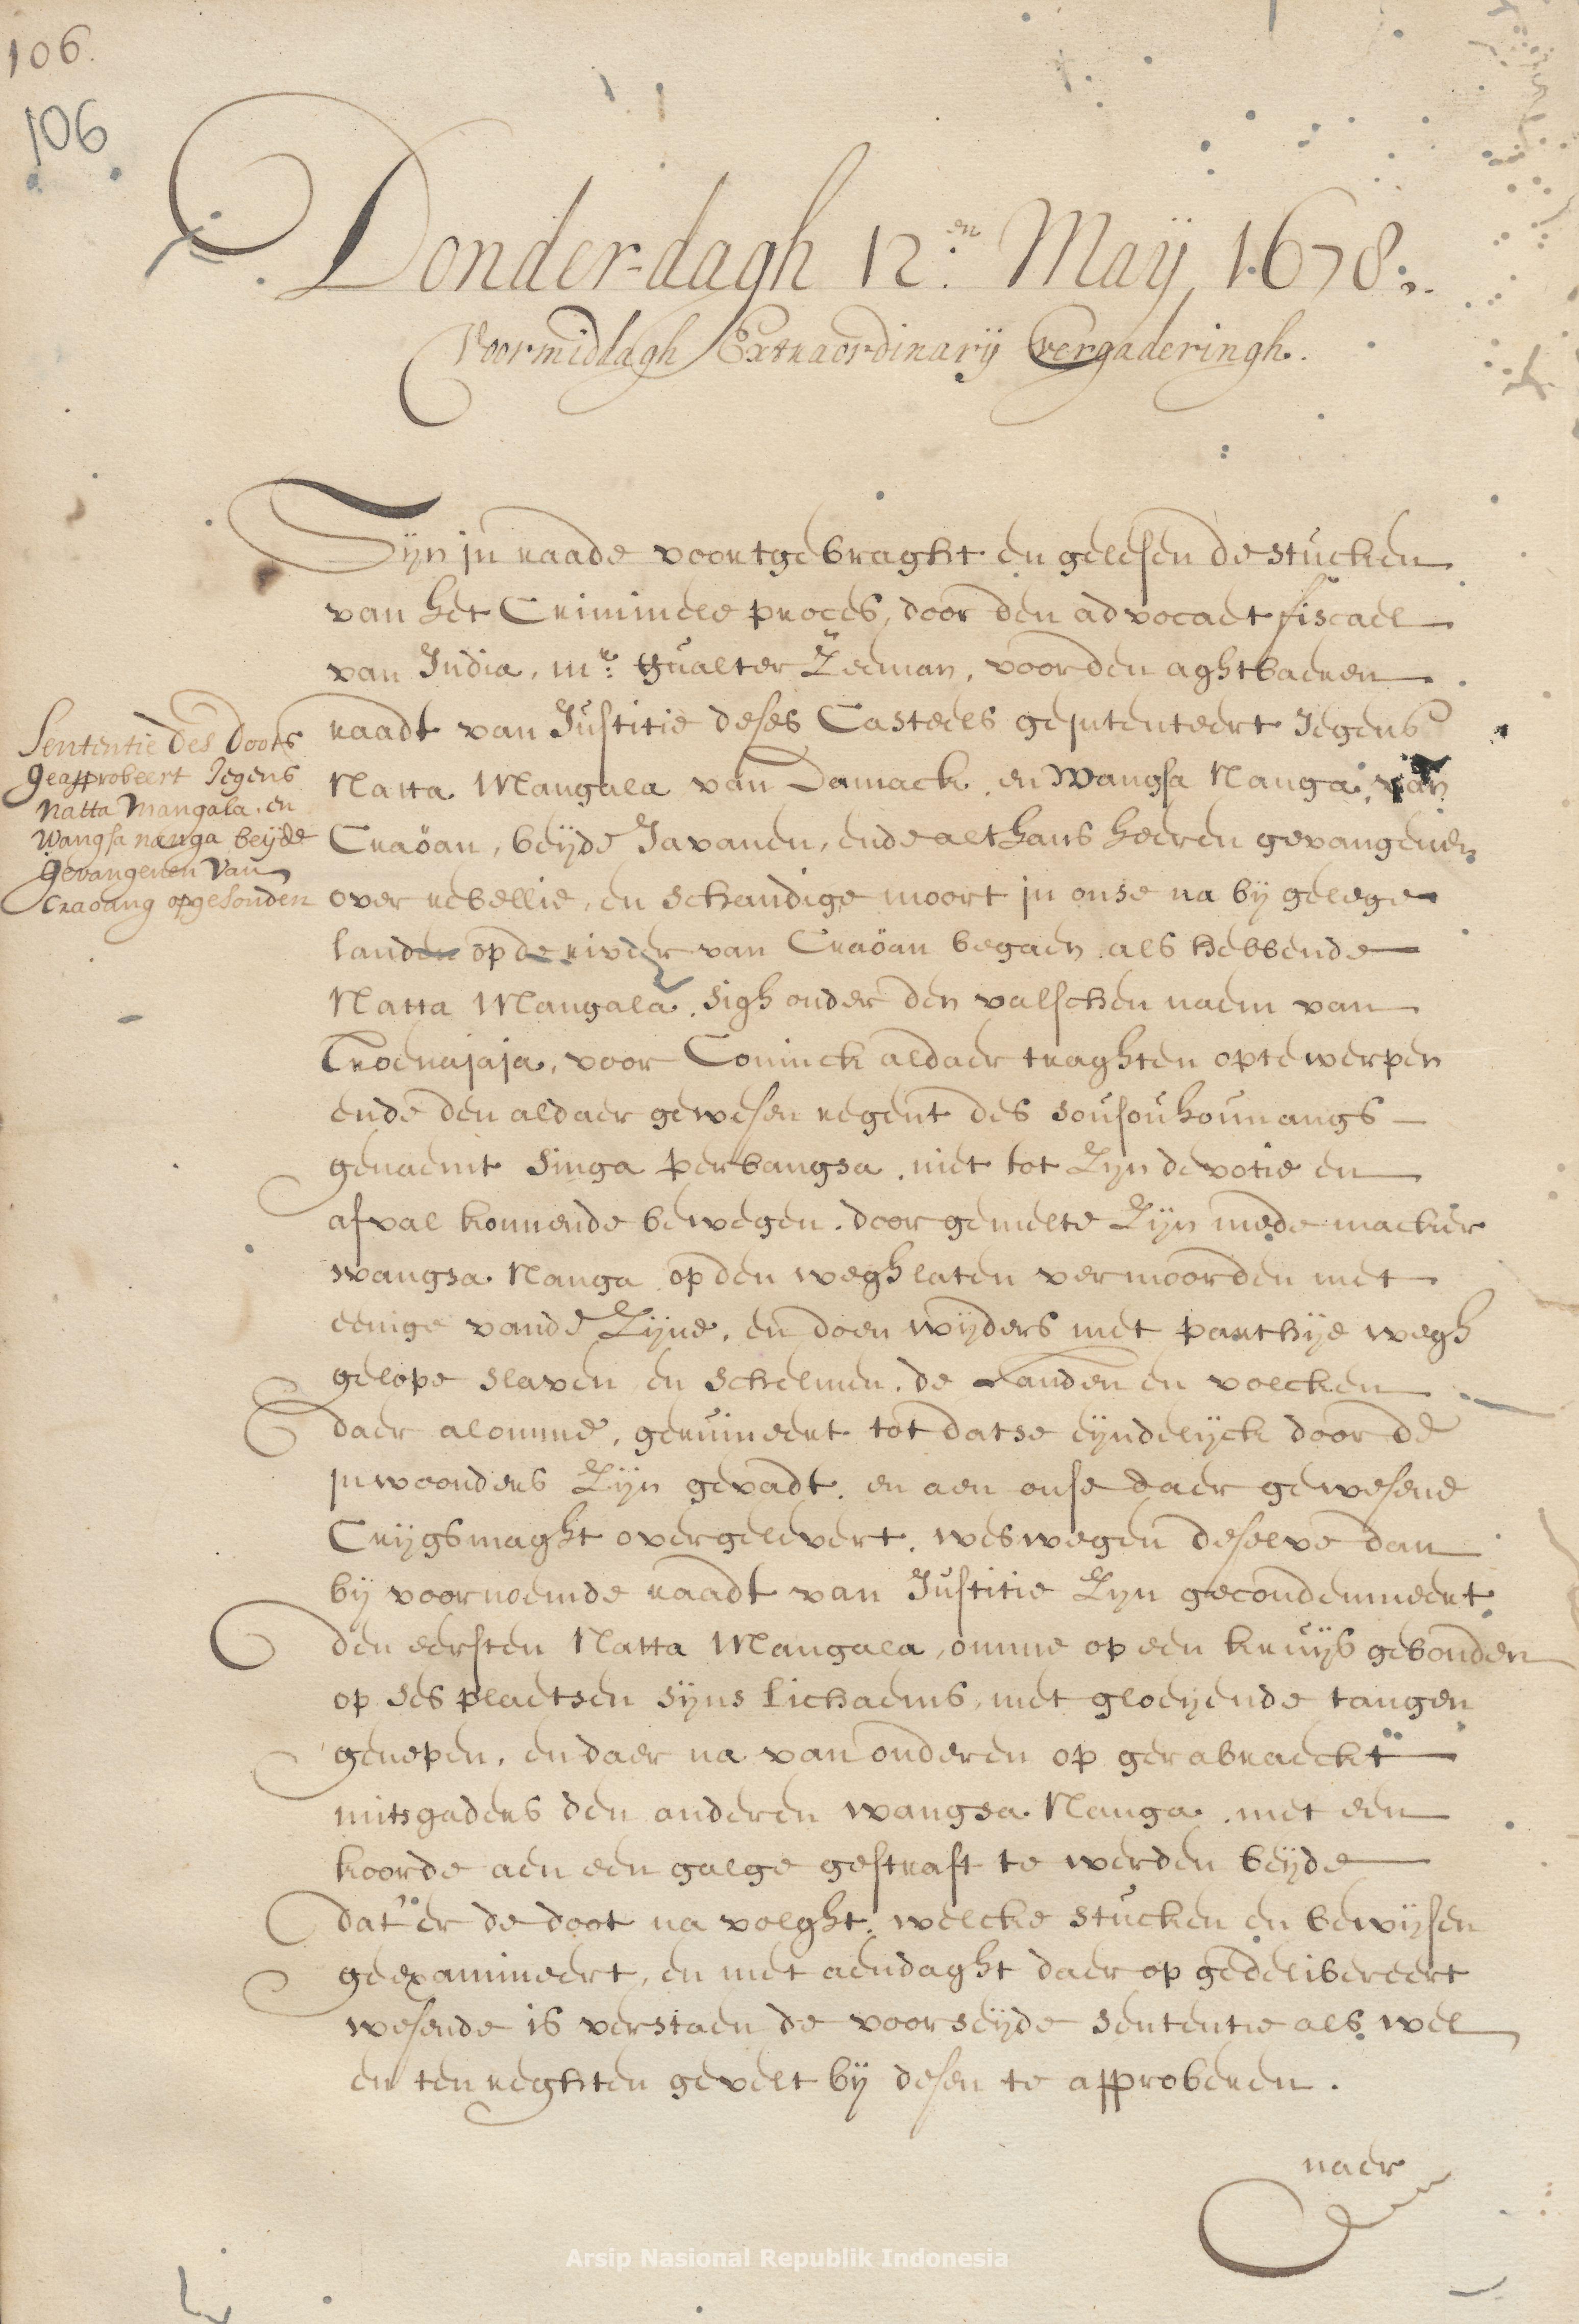 106.
106
Donder-dagh 12:en Maij 1678:.
Voormiddagh Extraordinarij vergaderingh.
Sijn in raade voortgebraght en gelesen de stucken
van het Crimineele proces, door den advocaet fiscael
van India, mr: Gualter Zeeman, voor den aghtbaeren
raadt van Justitie deses Casteels geintenteert Jegens
Sententie des Doots
geapprobeert Jegens
Natta Mangala, en
Wangsa nanga beijde
gevangenen van
Craoang opgesonden
Natta Mangala van Damack, en Wangsa Nanga, van
Craöan, beijde Javanen, ende althans heeren gevangenen
over rebellie, en schandige moort in onse na bij gelege
landen op de rivier van Craöan begaen, als hebbende
Natta Mangala, sigh onder den valschen naem van
Troenajaja, voor Coninck aldaer traghten op te werpen
ende den aldaer gewesen regent des sousouhounangs
genaemt Singa perbangsa, niet tot Zyn devotie en
afval konnende bewegen, door gemelte Zijn mede macker
wangsa Nanga op den wegh laten vermoorden met
eenige vande Zijne, en doen wijders met parthije wegh
gelope slaven en schelmen, de Landen en volcken
daer alomme, geruineert tot datse eijndelijck door de
inwoonders Zijn gevadt, en aen onse daer gewesene
Crijgsmaght overgelevert, weswegen deselve dan
bij voornoemde raadt van Justitie Zyn gecondemneert
den eersten Natta Mangala, omme op een kruijs gebonden
op ses plaetsen sijns lichaems, met gloeijende tangen
genepen, en daer na van onderen op gerabraeckt
mitsgaders den anderen wangsa Nanga, met een
koorde aen een galge gestraft te werden beijde
dat'er de doot na volght, welcke stucken en bewijsen
geexamineert, en met aendaght daer op gedelibereert
wesende is verstaen de voorseijde sententie als wel
en ten reghten gevelt bij desen te approberen.
naer
Arsip Nasional Republik Indonesia